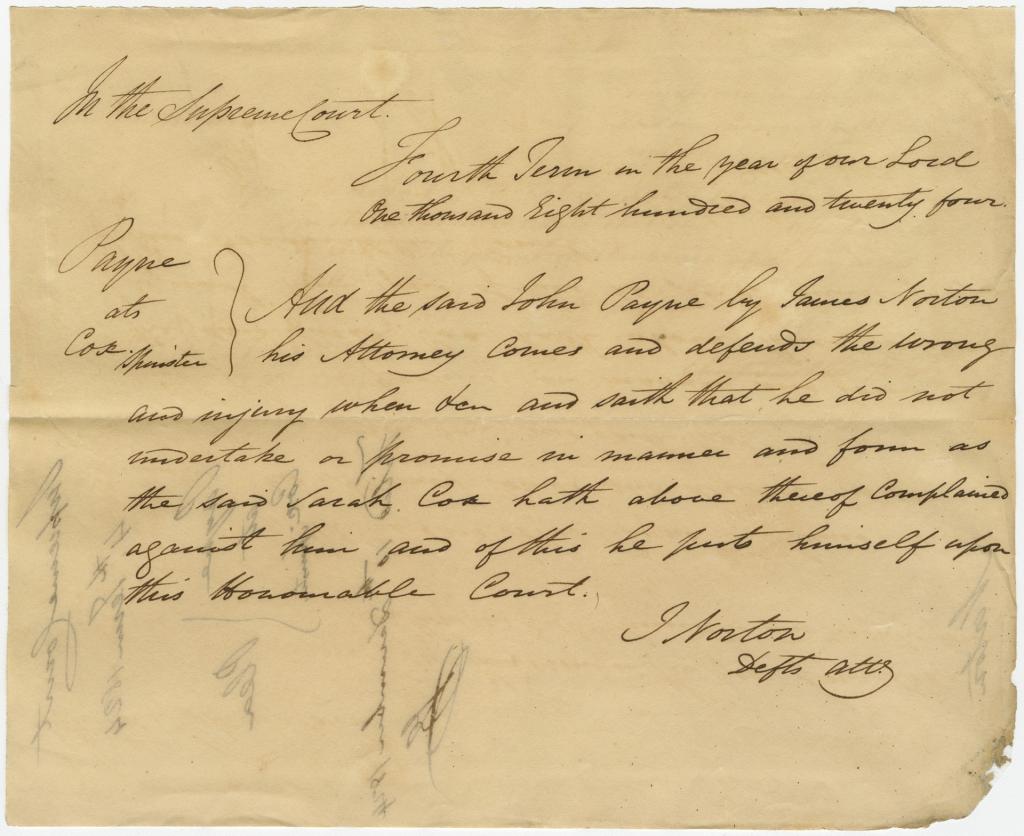 In the Supreme Court.
Fourth Term in the year of our Lord
One thousand Eight hundred and twenty four.
Payne
ats
Cox Spinster
And the said John Payne by James Norton
his Attorney Comes and defends the wrong
and injury when &c and saith that he did not
undertake or promise in manner and form as
the said Sarah Cox hath above thereof Complained
against him and of this he puts himself upon
this Honourable Court.
J Norton
Defts atty
Supreme Court